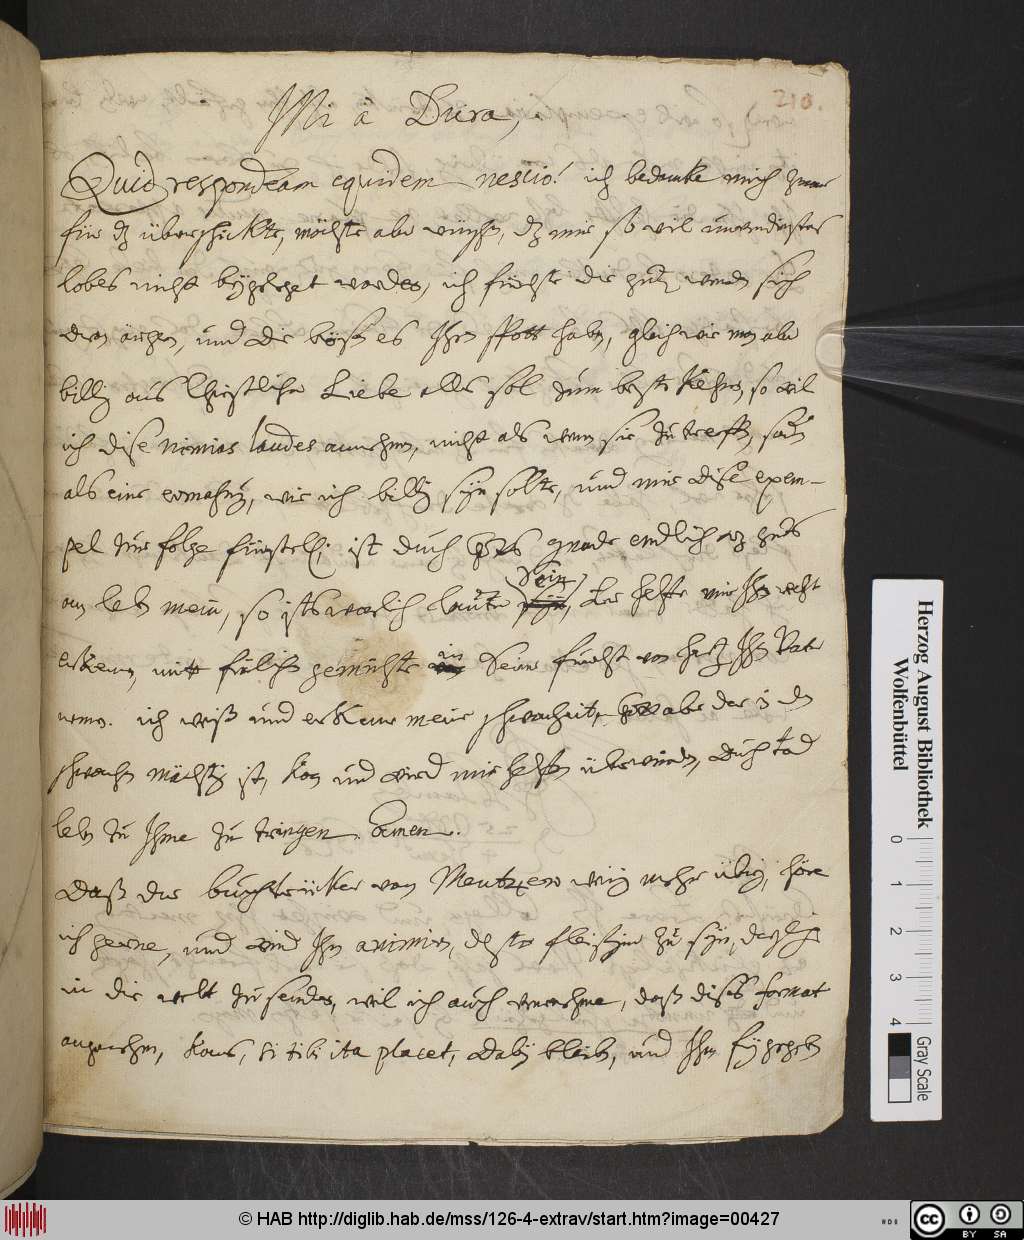 210.
Mi à Dura,
Quid respondeam equidem nescio! ich bedanke mich zwar
für dz überschickte, möchte aber wüschen, dz mir so vil unverdientes
lobes nicht beygeleget worden, ich fürchte die gutz werden sich
dran ärgern, und die bösen es Ihren spott haben, gleich wie man aber
billig aus Christlicher Liebe alles sol zum besten kehren, so wil
ich dise nimias laudes annehmen, nicht als wenn sie zu treffen, sondern
als eine ermahnung, wie ich billig seyn solte, und mir dise exem-
pel zur folge fürstellen; ist durch gnade endlich etwz gutes
am leben mein, so ists warlich lauter Sein, der helffe mir Ihn recht
erkennen, mitt gemühte in Seine furcht von hertz Ihn Vater
nennen. ich weiß und erkenne meine schwacheit, Gott aber der in den
schwachen mächtig ist, kan und wird mir helffen überwinden, durch tod
leben zu Ihme zu dringen. Amen.
Daß der buchtrücker von Mentzen wenig mehr übrig, höre
ich gerne, und wird Ihn animiren, desto fleissiger zu seyn, dergleichen
in die welt zu senden, weil ich auch vernehme, daß dises format
angenehm, kans, si tibi ita placet, dabey bleiben, und Ihm
Herzog August Bibliothek
Wolfenbüttel
0 1 2 3 4
Gray Scale
© HAB http://diglib.hab.de/mss/126-4-extrav/start.htm?image=00427
cc BY SA